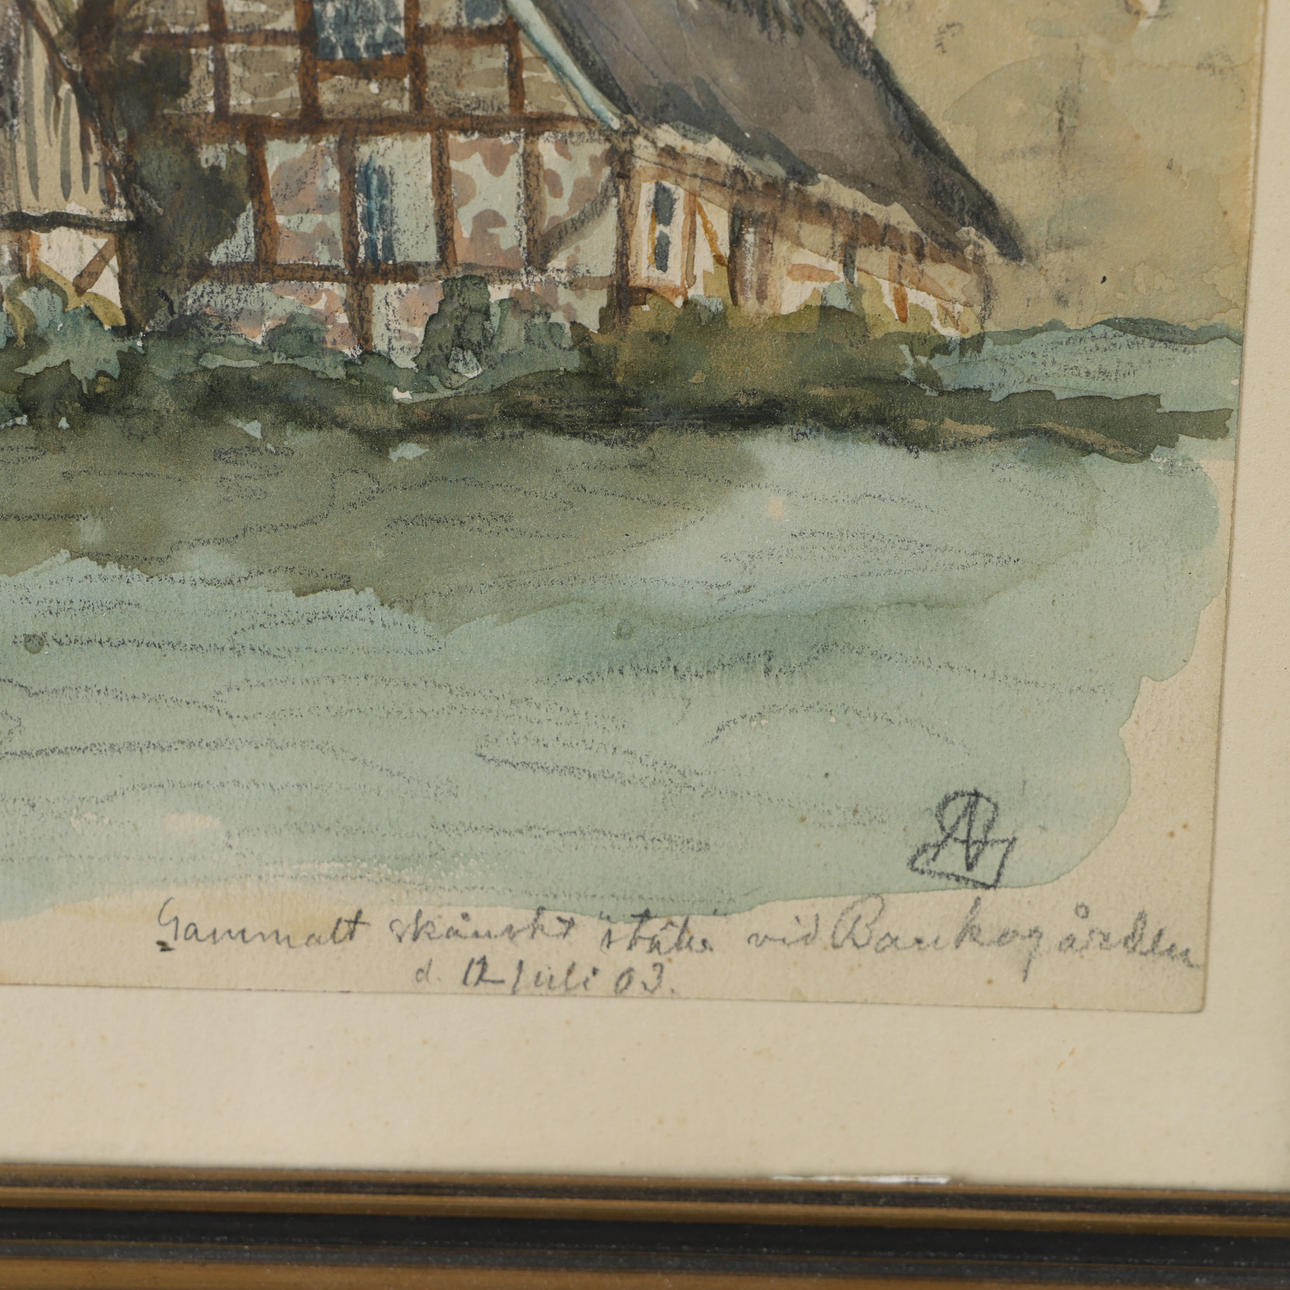 Gammalt skånskt "ställe" vid Bankogården
d. 12 Juli 03.